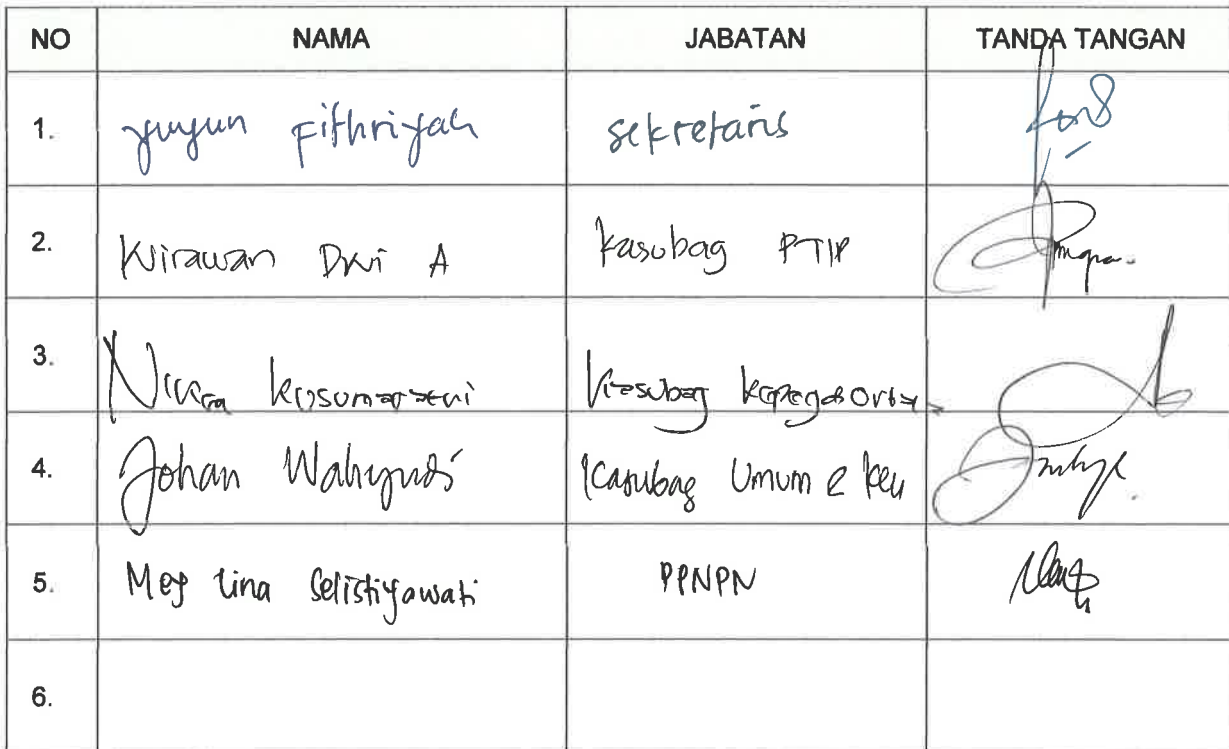 NO NAMA JABATAN TANDA TANGAN
1. Yuyun Fithriyah sekretaris
2. Wirawan Dwi A Kasubag PTIP
3. Kusumastuti Kasubag Kepeg & Ortala
4. Johan Wahyudi Kasubag Umum & Keu
5. Mey Lina Selistiyawati PPNPN
6.